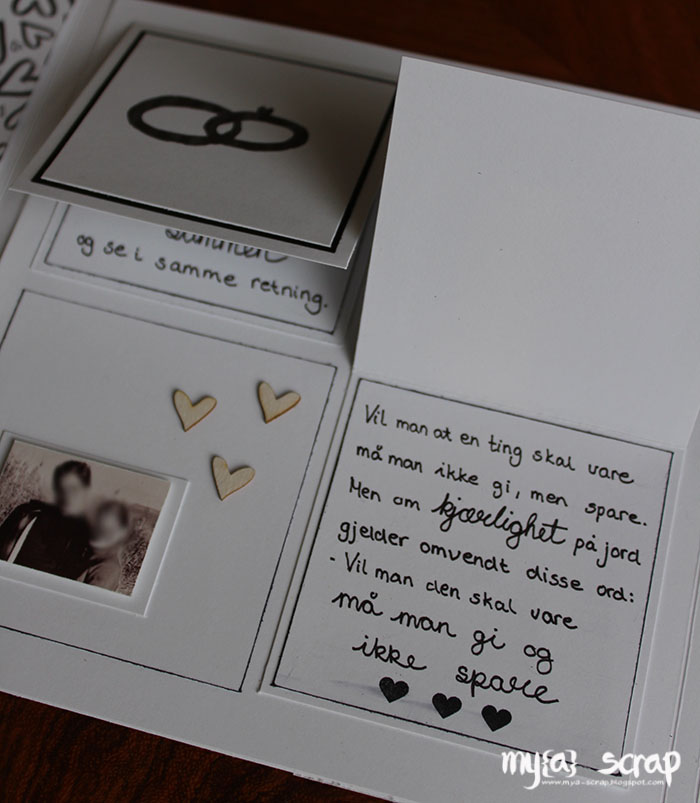 sammen
og se i samme retning.
Vil man at en ting skal vare
må man ikke gi, men spare.
Men om kjærlighet på jord
gjelder omvendt disse ord:
- Vil man den skal vare
må man gi og
ikke spare
my{a} scrap
www.mya-scrap.blogspot.com